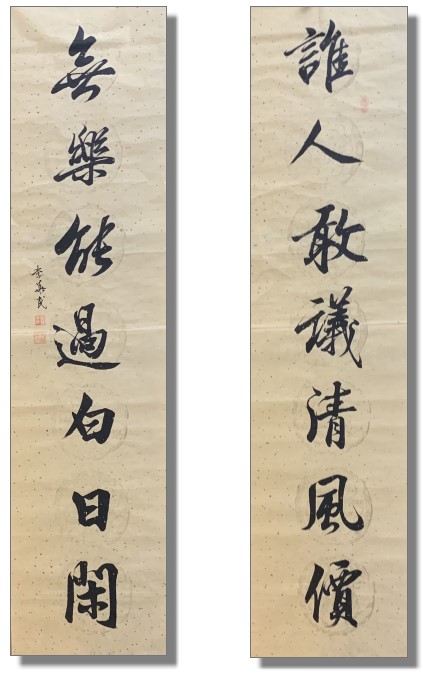 誰人敢議清風價
無樂能過白日閑
李華武